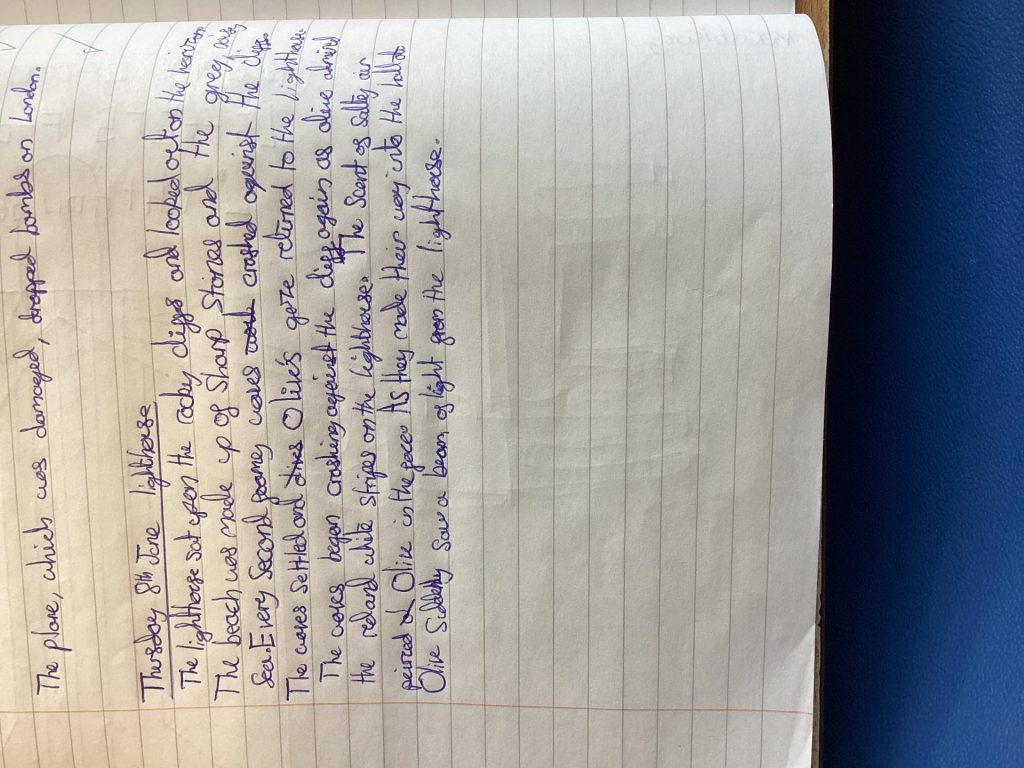 The plane, which was damaged, dropped bombs on London.
Thursday 8th June lighthouse
The lighthouse sat upon the rocky cliffs and looked out on the horizon
The beach was made up of Sharp Stones and the grey,
Sea. Every Second foamey waves crashed against the cliffs.
The waves Settled and Olive's gaze returned to the lighthouse
The waves began crashing against the cliff again as olive admired
the red and white stripes on the lighthouse. The Scent of Salty air
Olive in the face As they made their way into the
Olive Suddenly Saw a beam of light from the lighthouse.